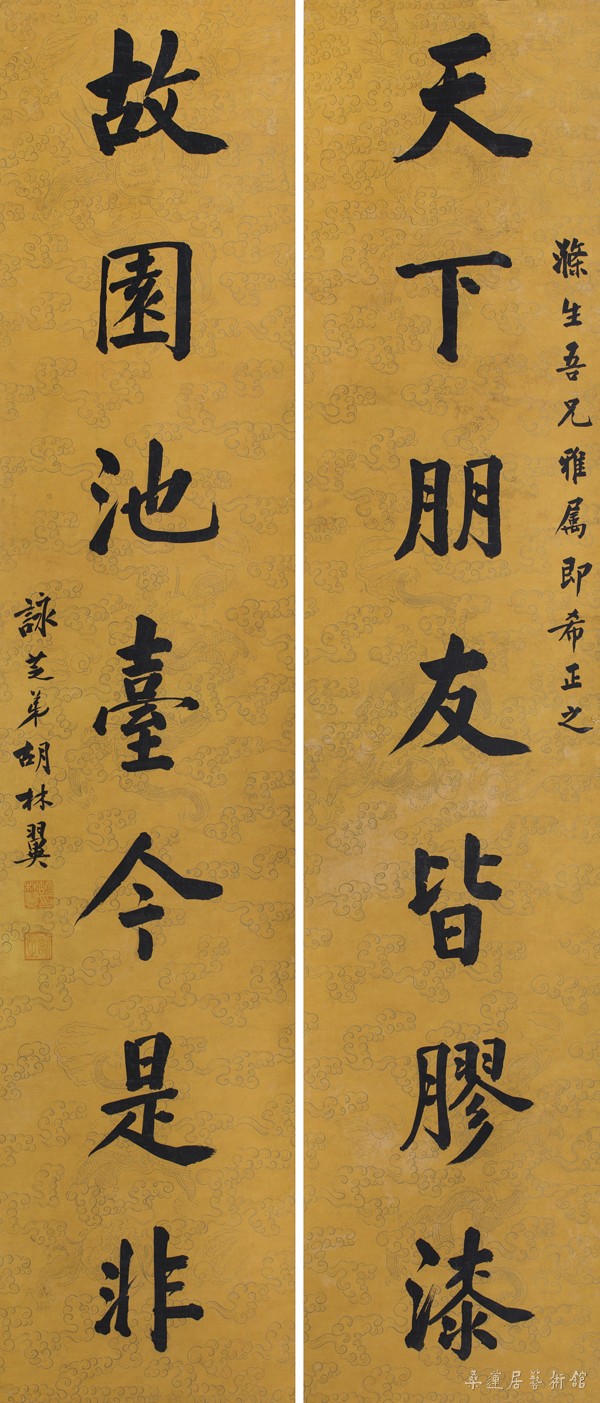 天下朋友皆膠漆
滌生吾兄雅属即希正之
故園池臺今是非
詠芝弟胡林翼
桑蓮居藝術館